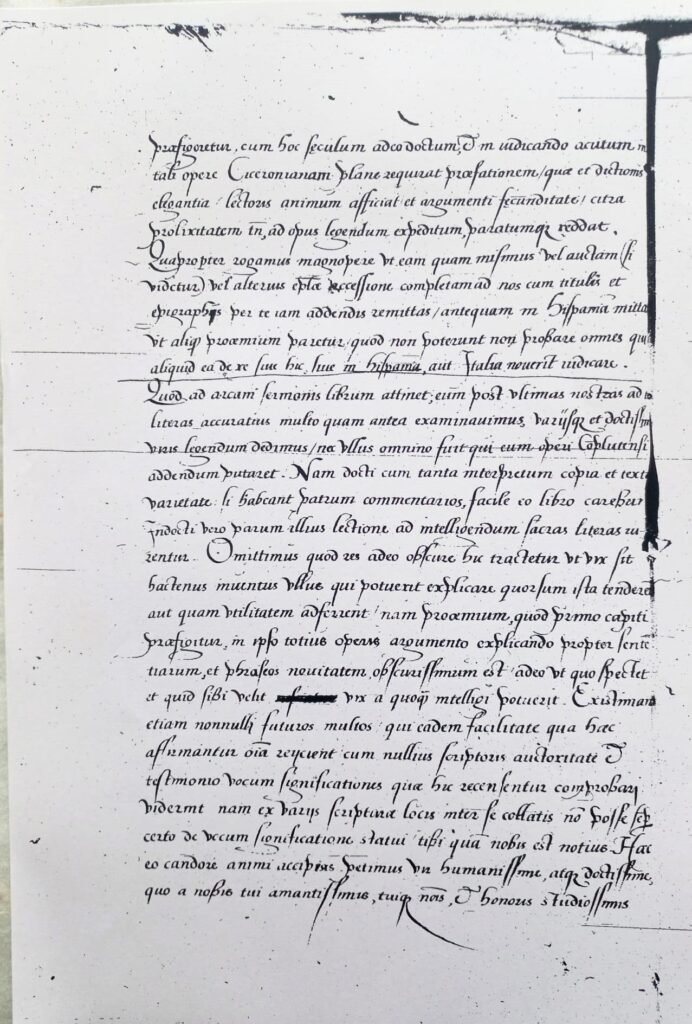 præfigeretur, cum hoc seculum adeo doctum, & in iudicando acutum in
tali opere Ciceronianam plane requirat præfationem/ quæ et dictionis
elegantia/ lectoris animum afficiat et argumenti fecunditate/ citra
prolixitatem tn, ad opus legendum expeditum, paratumq reddat.
Quapropter rogamus magnopere vt eam quam misimus vel auctam (si
videtur) vel alterius eplæ accessione completam ad nos cum titulis et
epigraphis per te iam addendis remittas/ antequam in Hispaniā mitta
vt aliq proœmium paretur, quod non poterunt non probare omnes qui
aliquid ea de re siue hic, siue in hispania, aut Italia nouerit iudicare.
Quod ad arcani sermonis librum attinet, eum post vltimas nostras ad te
literas accuratius multo quam antea examinauimus, varijsq et doctissim
viris legendum dedimus/ nec vllus omnino fuit qui eum operi Coplutensi
addendum putaret. Nam docti cum tanta interpretum copia et textꝰ
varietate si habeant patrum commentarios, facile eo libro carebun
Indocti vero parum illius lectione ad intelligendum sacras literas iu-
rentur. Omittimus quod res adeo obscure hic tractetur vt vix sit
hactenus inuentus vllus qui potuerit explicare quorsum ista tenderēt
aut quam vtilitatem adferrent/ nam proœmium, quod primo capiti
præfigitur, in ipso totius operis argumento explicando propter senten
tiarum, et phraseos nouitatem, obscurissimum est adeo vt quo spectet
et quid sibi velit vix a quoq intelligi potuerit. Existimant
etiam nonnulli futuros multos qui eadem facilitate qua hæc
affirmantur oīa reijcient cum nullius scriptoris auctoritate &
testimonio vocum significationes quæ hic recensentur comprobari
viderint nam ex varijs scripturæ locis inter se collatis nō posse sēp
certo de vocum significatione statui tibi quā nobis est notius. Hæc
eo candore animi accipias petimus vir humanissime, atq doctissime,
quo a nobis tui amantissimis, tuiq nois, & honoris studiosissimis